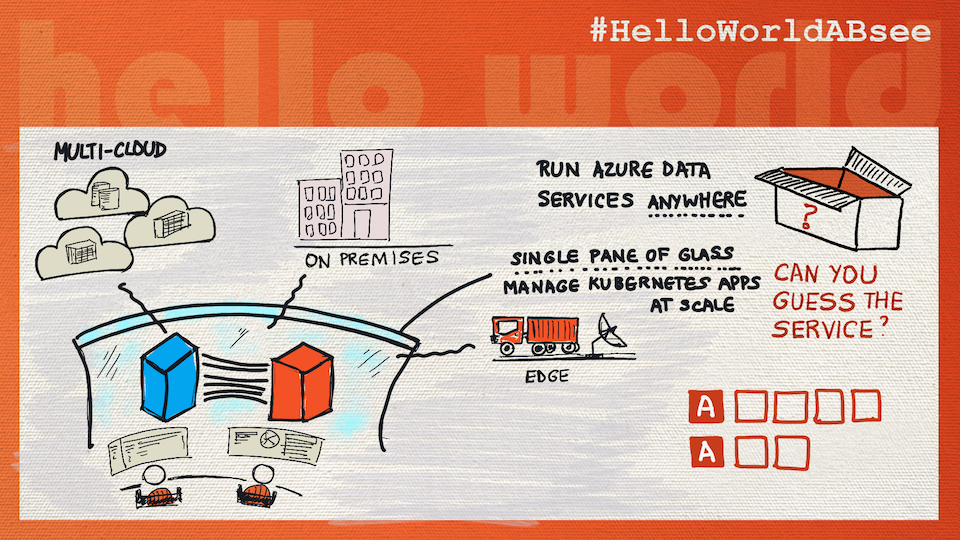 #HelloWorldABsee
hello world
MULTI-CLOUD
ON PREMISES
RUN AZURE DATA
SERVICES ANYWHERE
?
SINGLE PANE OF GLASS
MANAGE KUBERNETES APPS
AT SCALE
CAN YOU
GUESS THE
SERVICE?
EDGE
K
A
A